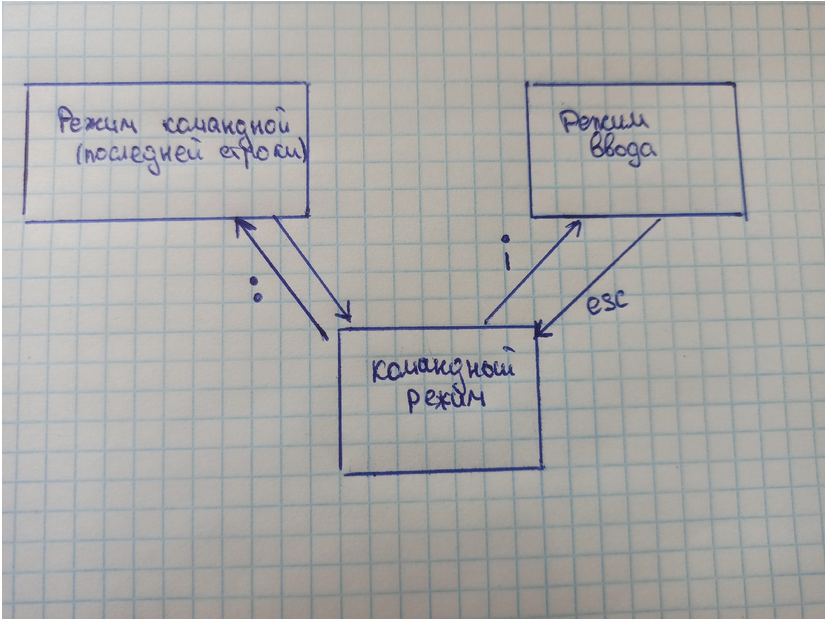 Режим командной
(последней строки)
Режим
ввода
:
i
esc
командный
режим